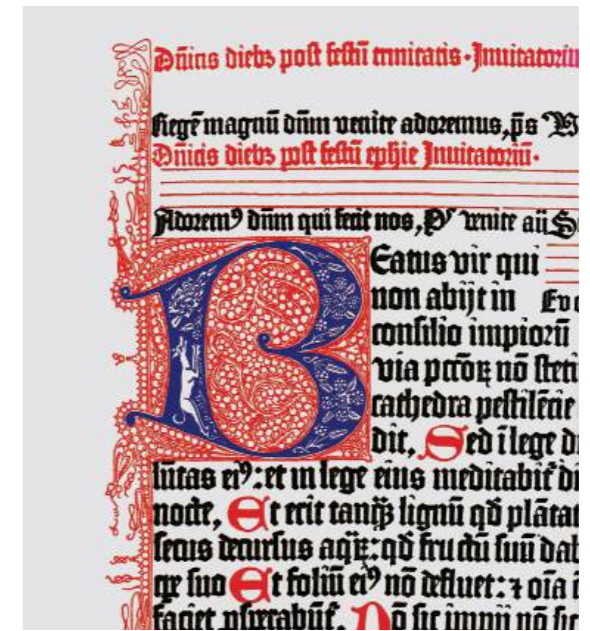 Dñicis diebꝫ post festū trinitatis · Inuitatoriu
Regē magnū dñm venite adoremus, p̄s
Dñicis diebꝫ post festū ephie Inuitatoriū·
Adorem⁹ dūm qui fecit nos, P̄s venite aū S
BEatus vir qui
non abijt in Evo
consilio impiorū
via pccōꝝ nō steti
cathedra pestilēcie
dit, Sed ī lege d
lūtas ei⁹: et in lege eius meditabit̄ di
nocte, Et erit tanqꝫ lignū qd̄ plātat
secus decursus aqꝝ: qd̄ fructū suū dab
suo Et foliū ei⁹ nō defluet: ⁊ oīa
faciet Nō sic impij nō sic